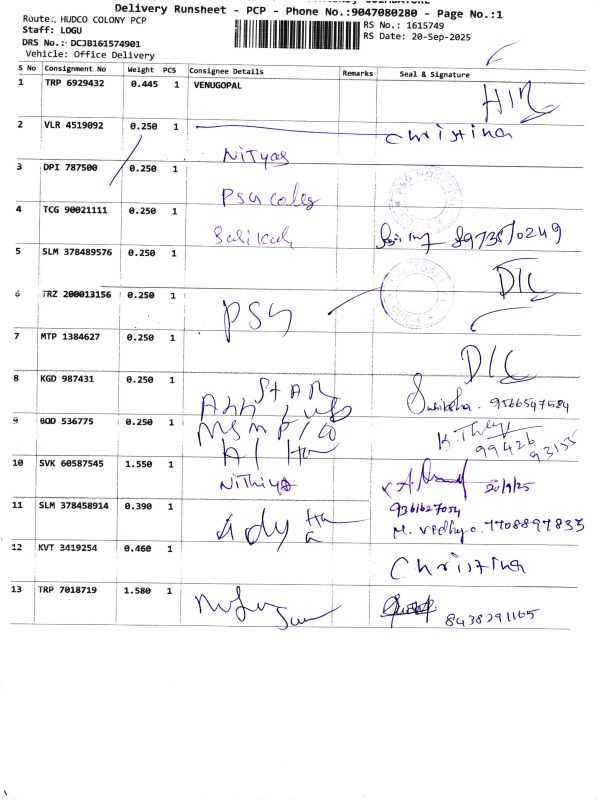 Delivery Runsheet - PCP - Phone No.:9047080280 - Page No.:1
Route:. HUDCO COLONY PCP
RS No.: 1615749
Staff: LOGU
RS Date: 20-Sep-2025
DRS No.:. DCJB161574901
Vehicle: Office Delivery
S No Consignment No Weight PCS Consignee Details Remarks Seal & Signature
1 TRP 6929432 0.445 1 VENUGOPAL
2 VLR 4519092 0.250 1 Christina
Nityas
3 DPI 787500 0.250 1
PSG
4 TCG 90021111 0.250 1
5 SLM 378489576 0.250 1 DIC
6 TRZ 200013156 0.250 1 PSG
7 MTP 1384627 0.250 1 DIC
8 KGD 987431 0.250 1 STAR
9566547584
9 BOD 536775 0.250 1
99426
93155
10 SVK 60587545 1.550 1 Nithiya
20/9/25
9361627054
11 SLM 378458914 0.390 1 M. Vidhya. 7708897835
12 KVT 3419254 0.460 1 Christina
13 TRP 7018719 1.580 1
8438291165